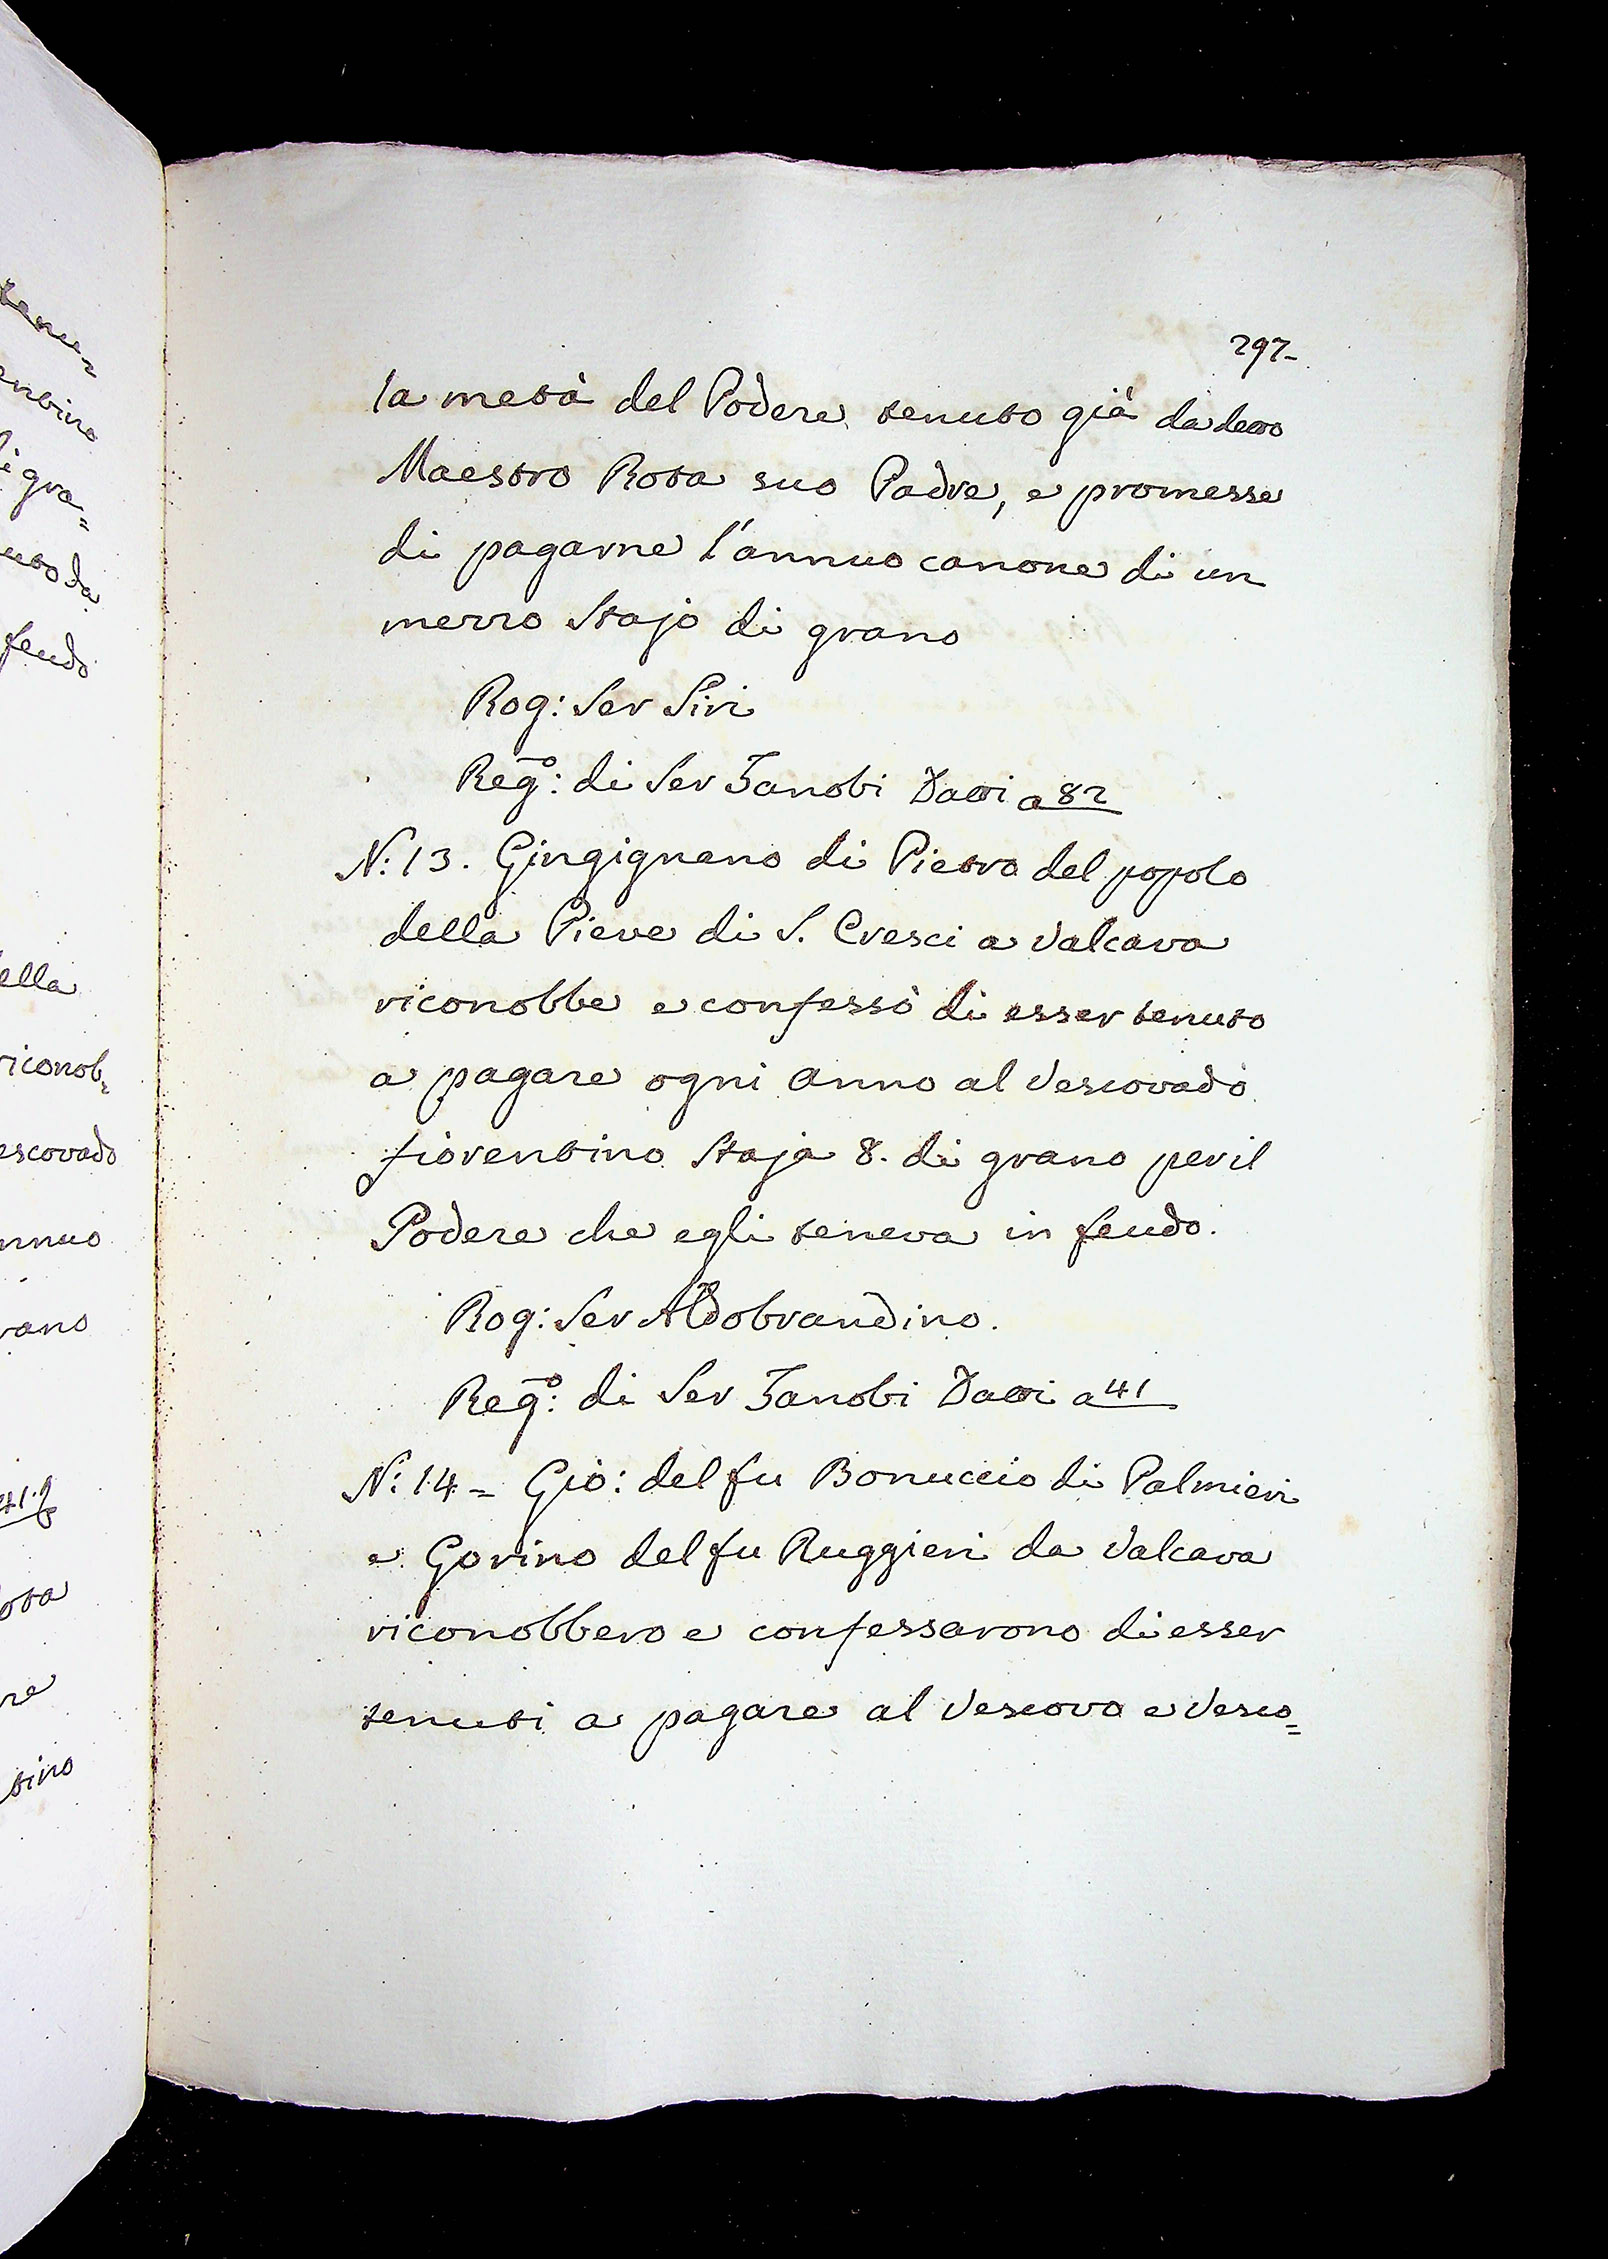 tenu=
entino
i gra=
uto da
feudo
ella
riconob=
escovado
nnuo
rano
41.
ota
re
tino
297.
la metà del Podere tenuto già da detto
Maestro Rota suo Padre, e promesse
di pagarne l'annuo canone di un
mezzo Stajo di grano
Rog: Ser Siri
Reg.o: di Ser Zanobi Dazzi a 82
N: 13. Gingignano di Pietro del popolo
della Pieve di S. Cresci a Valcava
riconobbe e confessò di esser tenuto
a pagare ogni anno al Vescovado
fiorentino Staja 8. di grano per il
Podere che egli teneva in feudo.
Rog: Ser Aldobrandino.
Reg.o: di Ser Zanobi a 41
N: 14 = Gio: del fu Bonuccio di Palmieri
e Gorino del fu Ruggieri da Valcava
riconobbero e confessarono di esser
tenuti a pagare al Vescovo e Vesco=